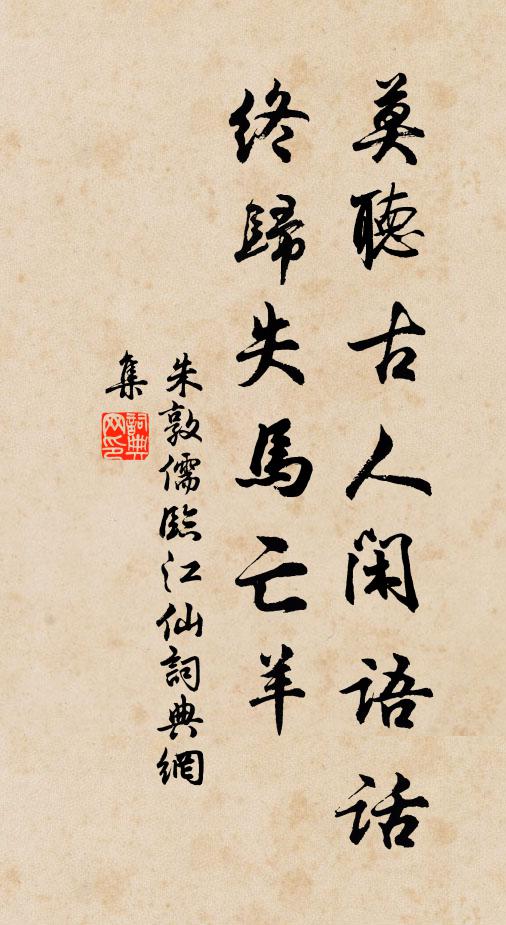 莫聽古人閑語話
終歸失馬亡羊
朱敦儒臨江仙詞典網
集
詞典
网印